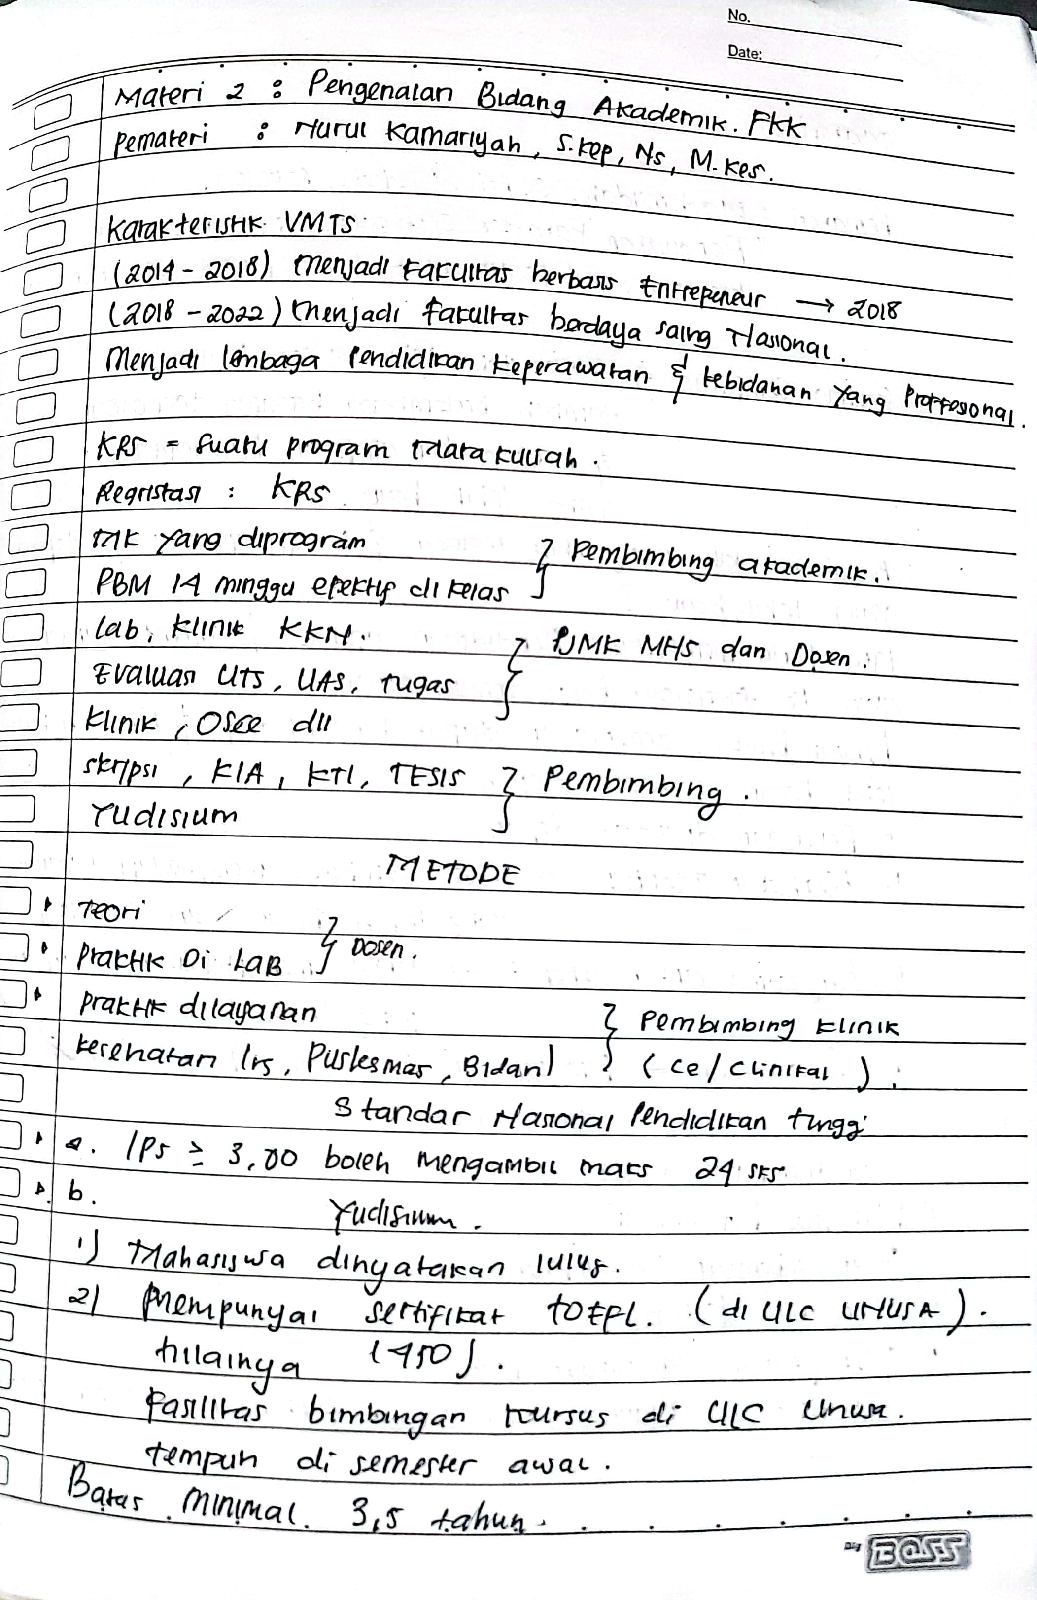 No.
Date:
Materi 2 : Pengenalan Bidang Akademik. FKK
Pemateri : Nurul Kamariyah, S.Kep, Ns, M.Kes.
Karakteristik VMTS
(2014 - 2018) Menjadi Fakultas berbasis Entrepeneur → 2018
(2018 - 2022) Menjadi fakultas berdaya saing Nasional.
Menjadi lembaga Pendidikan Keperawatan & kebidanan yang Proffesional.
KRS = Suatu program Mata kuliah.
Regristasi : KRS
MK yang diprogram } Pembimbing akademik.
PBM 14 minggu efektif di kelas
Lab, Klinik KKN. } PJMK MHS dan Dosen.
Evaluasi UTS, UAS, tugas
Klinik, Osce dll
skripsi, KIA, KTI, TESIS } Pembimbing.
Yudisium
METODE
Teori } Dosen.
Praktik Di LAB
Praktik dilayanan } Pembimbing klinik
kesehatan (rs, Puskesmas, Bidan) (ce/Clinikal).
Standar Nasional Pendidikan tinggi
a. IPS ≥ 3,00 boleh mengambil maks 24 SKS
b.
Yudisium.
1) Mahasiswa dinyatakan lulus.
2) Mempunyai sertifikat TOEFL. (di ULC UNUSA).
nilainya (450).
Fasilitas bimbingan kursus di ULC Unusa.
tempuh di semester awal.
Batas minimal. 3,5 tahun.
BOSS